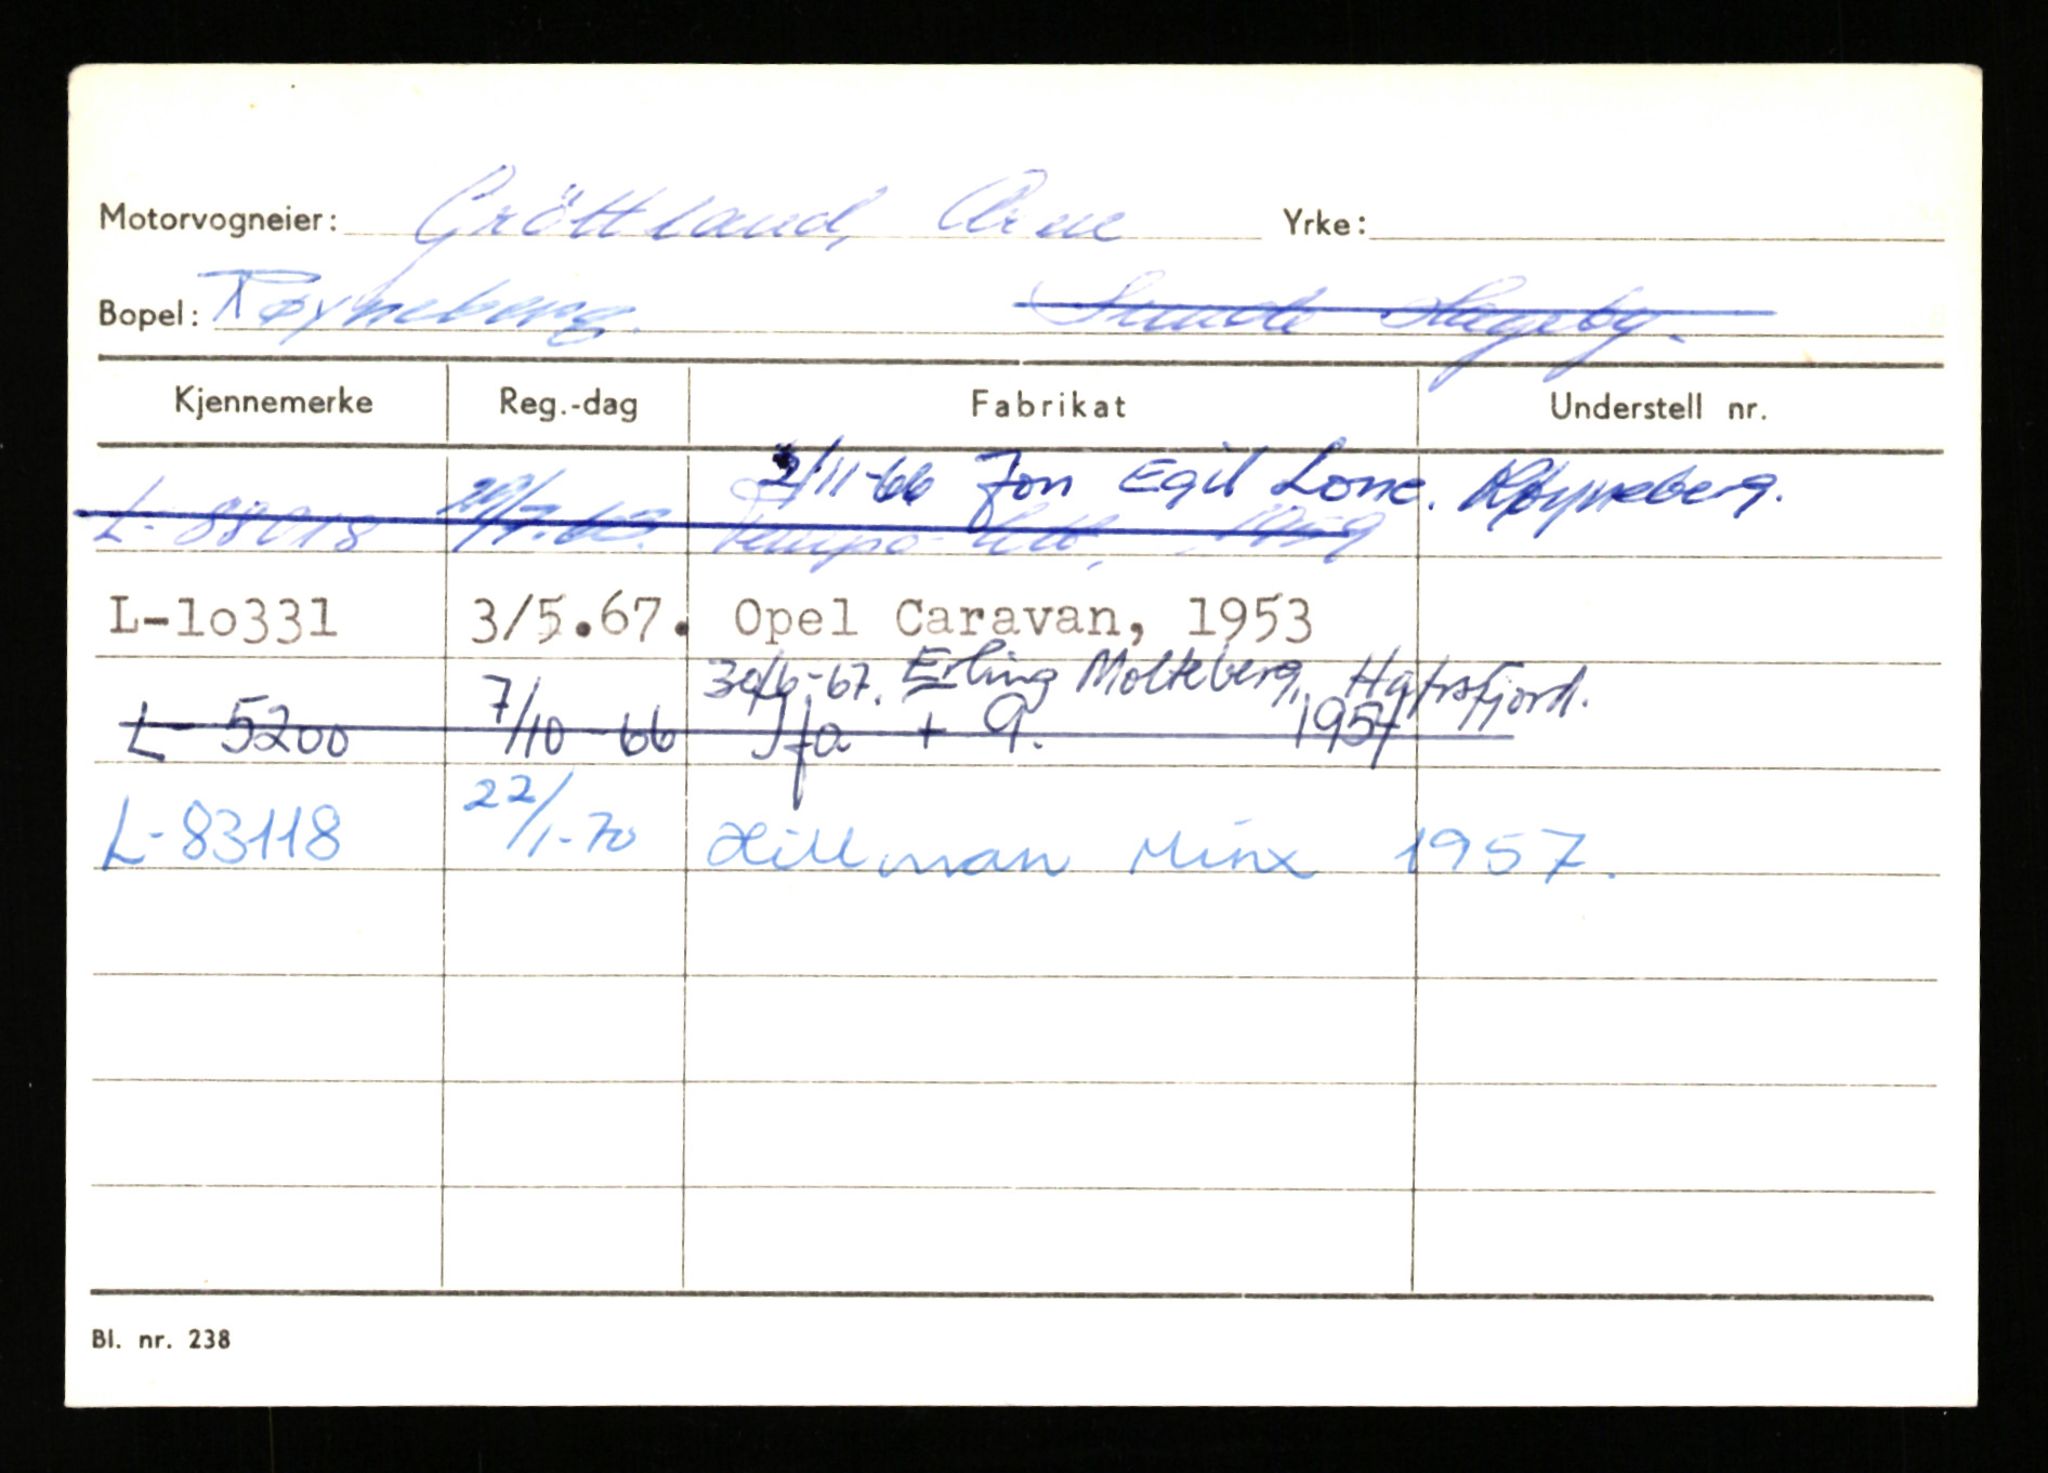 Motorvogneier: Gröttland, Arne Yrke:
Bopel: Røyneberg. Sunde Hageby.
Kjennemerke Reg.-dag Fabrikat Understell nr.
2/11-66 Jon Egil Lone. Røyneberg.
L-88018 Tempo
L-10331 3/5.67. Opel Caravan, 1953
30/6-67. Erling Molteberg, Hafrsfjord.
L-5200 7/10-66 Ifa + 9. 1957
L-83118 22/1-70 Hillman Minx 1957.
Bl. nr. 238